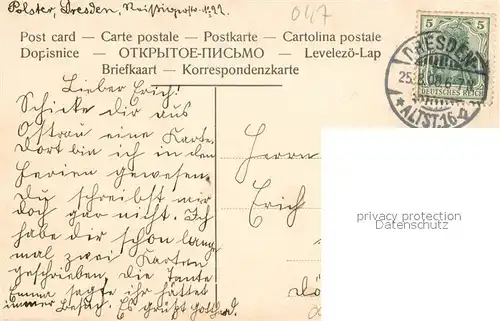 Polster, Dresden,
047
Post card — Carte postale — Postkarte — Cartolina postale
Dopisnice — ОТКРЫТОЕ-ПИСЬМО — Levelező-Lap
Briefkaart — Korrespondenzkarte
5 5
DEUTSCHES REICH
DRESDEN
ALTST.16
Lieber Erich!
Schicke dir aus
Ostrau eine Karte.
Dort bin ich in den
Ferien gewesen.
Du schreibst mir
doch gar nicht. Ich
habe dir schon lange
mal zwei Karten
geschrieben. Die Tante
Emma sagte ihr hättet
immer Besuch. Es grüßt Gotthard.
Herrn
Erich
privacy protection
Datenschutz